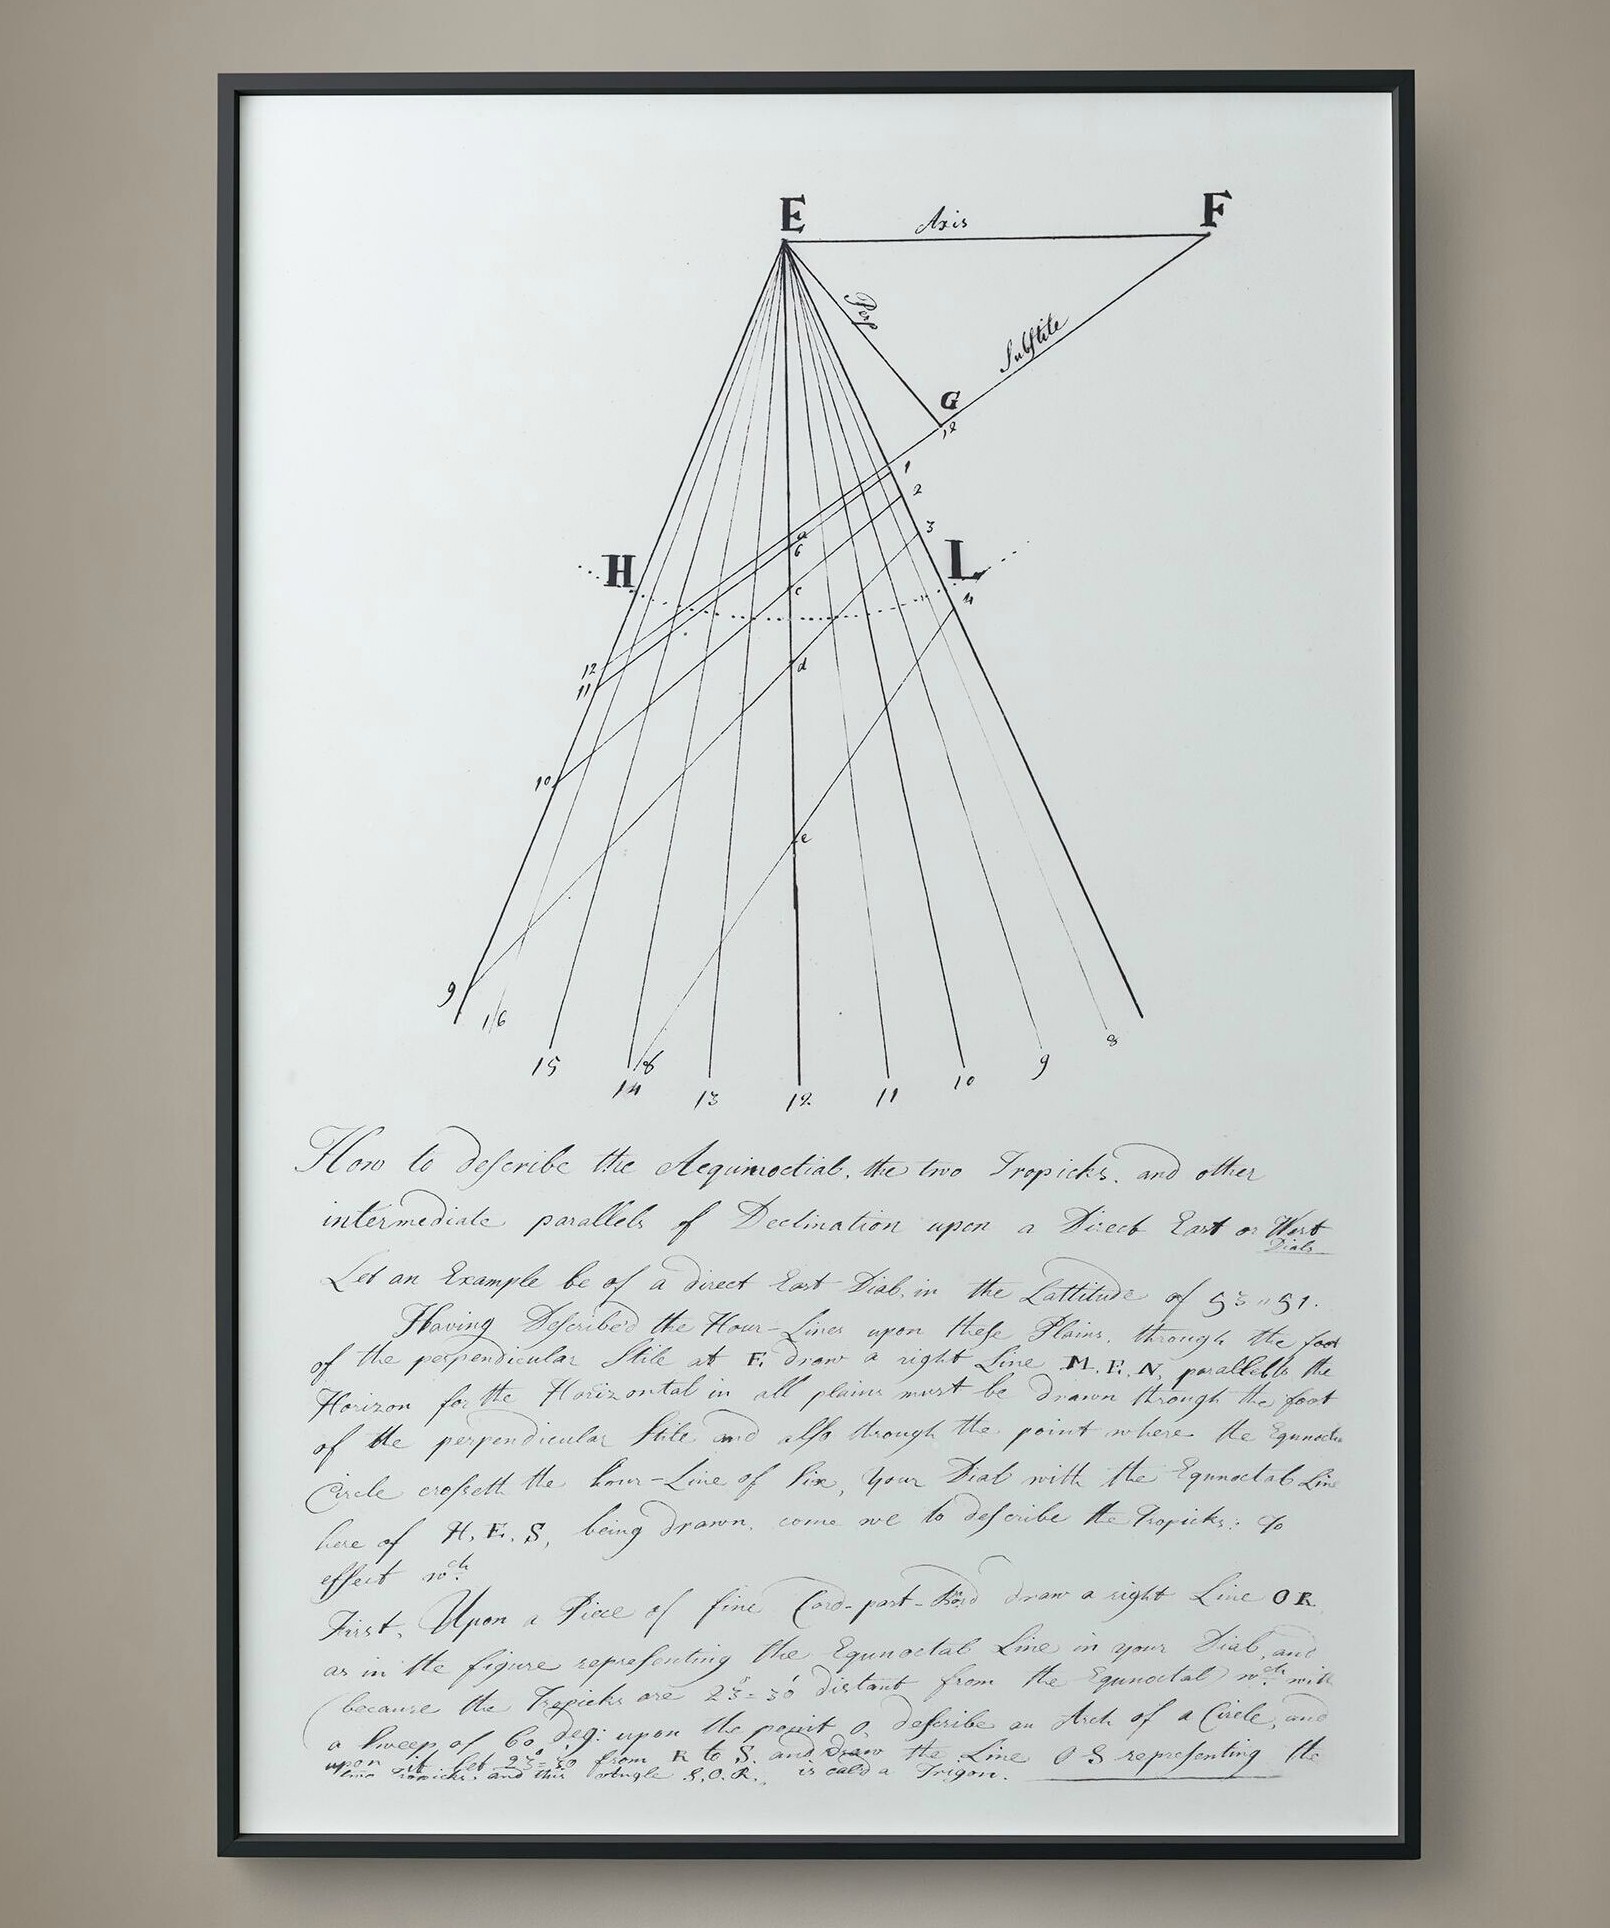 E Axis F
Perp
Substile
G
12
1
2
3
H L
a
6
c
4
12
11
d
10
e
9
16
15
14 8 13 12 11 10 9 8
How to describe the Aequinoctial, the two Tropicks, and other
intermediate parallels of Declination upon a Direct East or West
Dials
Let an Example be of a direct East Dial, in the Lattitude of 53"51.
Having Describe'd the Hour-Lines upon these Plains, through the foot
of the perpendicular Stile at E, draw a right Line M.E.N, parallel to the
Horizon for the Horizontal in all plains must be drawn through the foot
of the perpendicular Stile and also through the point where the Equnoctia
Circle crosseth the hour-Line of Six, Your Dial with the Equnoctal Line
here of H.E.S, being drawn, come we to describe the Tropicks: To
effect wch
First, Upon a Piece of fine Cord-past-Bord draw a right Line OR
as in the figure representing the Equnoctal Line in your Dial, and
(because the Tropicks are 23°=30' distant from the Equnoctal) wch with
a Sweep of 60 deg: upon the point O, describe an Arch of a Circle, and
upon it let 23°=30' from R to S. and Draw the Line O S representing the
Tropicks: and this Angle S.O.R., is call'd a Trigon.